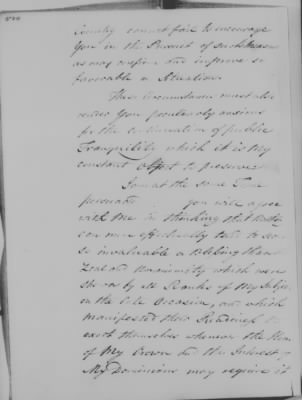 Country cannot fail to encourage
You in the Pursuit of such Measures
as may confirm and improve so
favorable a Situation.
These circumstances must also
render You peculiarly anxious
for the continuation of public
Tranquility which it is My
constant Object to preserve
I am at the same Time
persuaded You will agree
with Me in thinking that nothing
can more effectually tend to secure
so invaluable a Blessing than the
Zeal and Unanimity which were
shown by all Ranks of My Subjects
on the late Occasion, and which
manifested their Readiness to
exert themselves whenever the Honor
of My Crown and the Interest of
My Dominions may require it